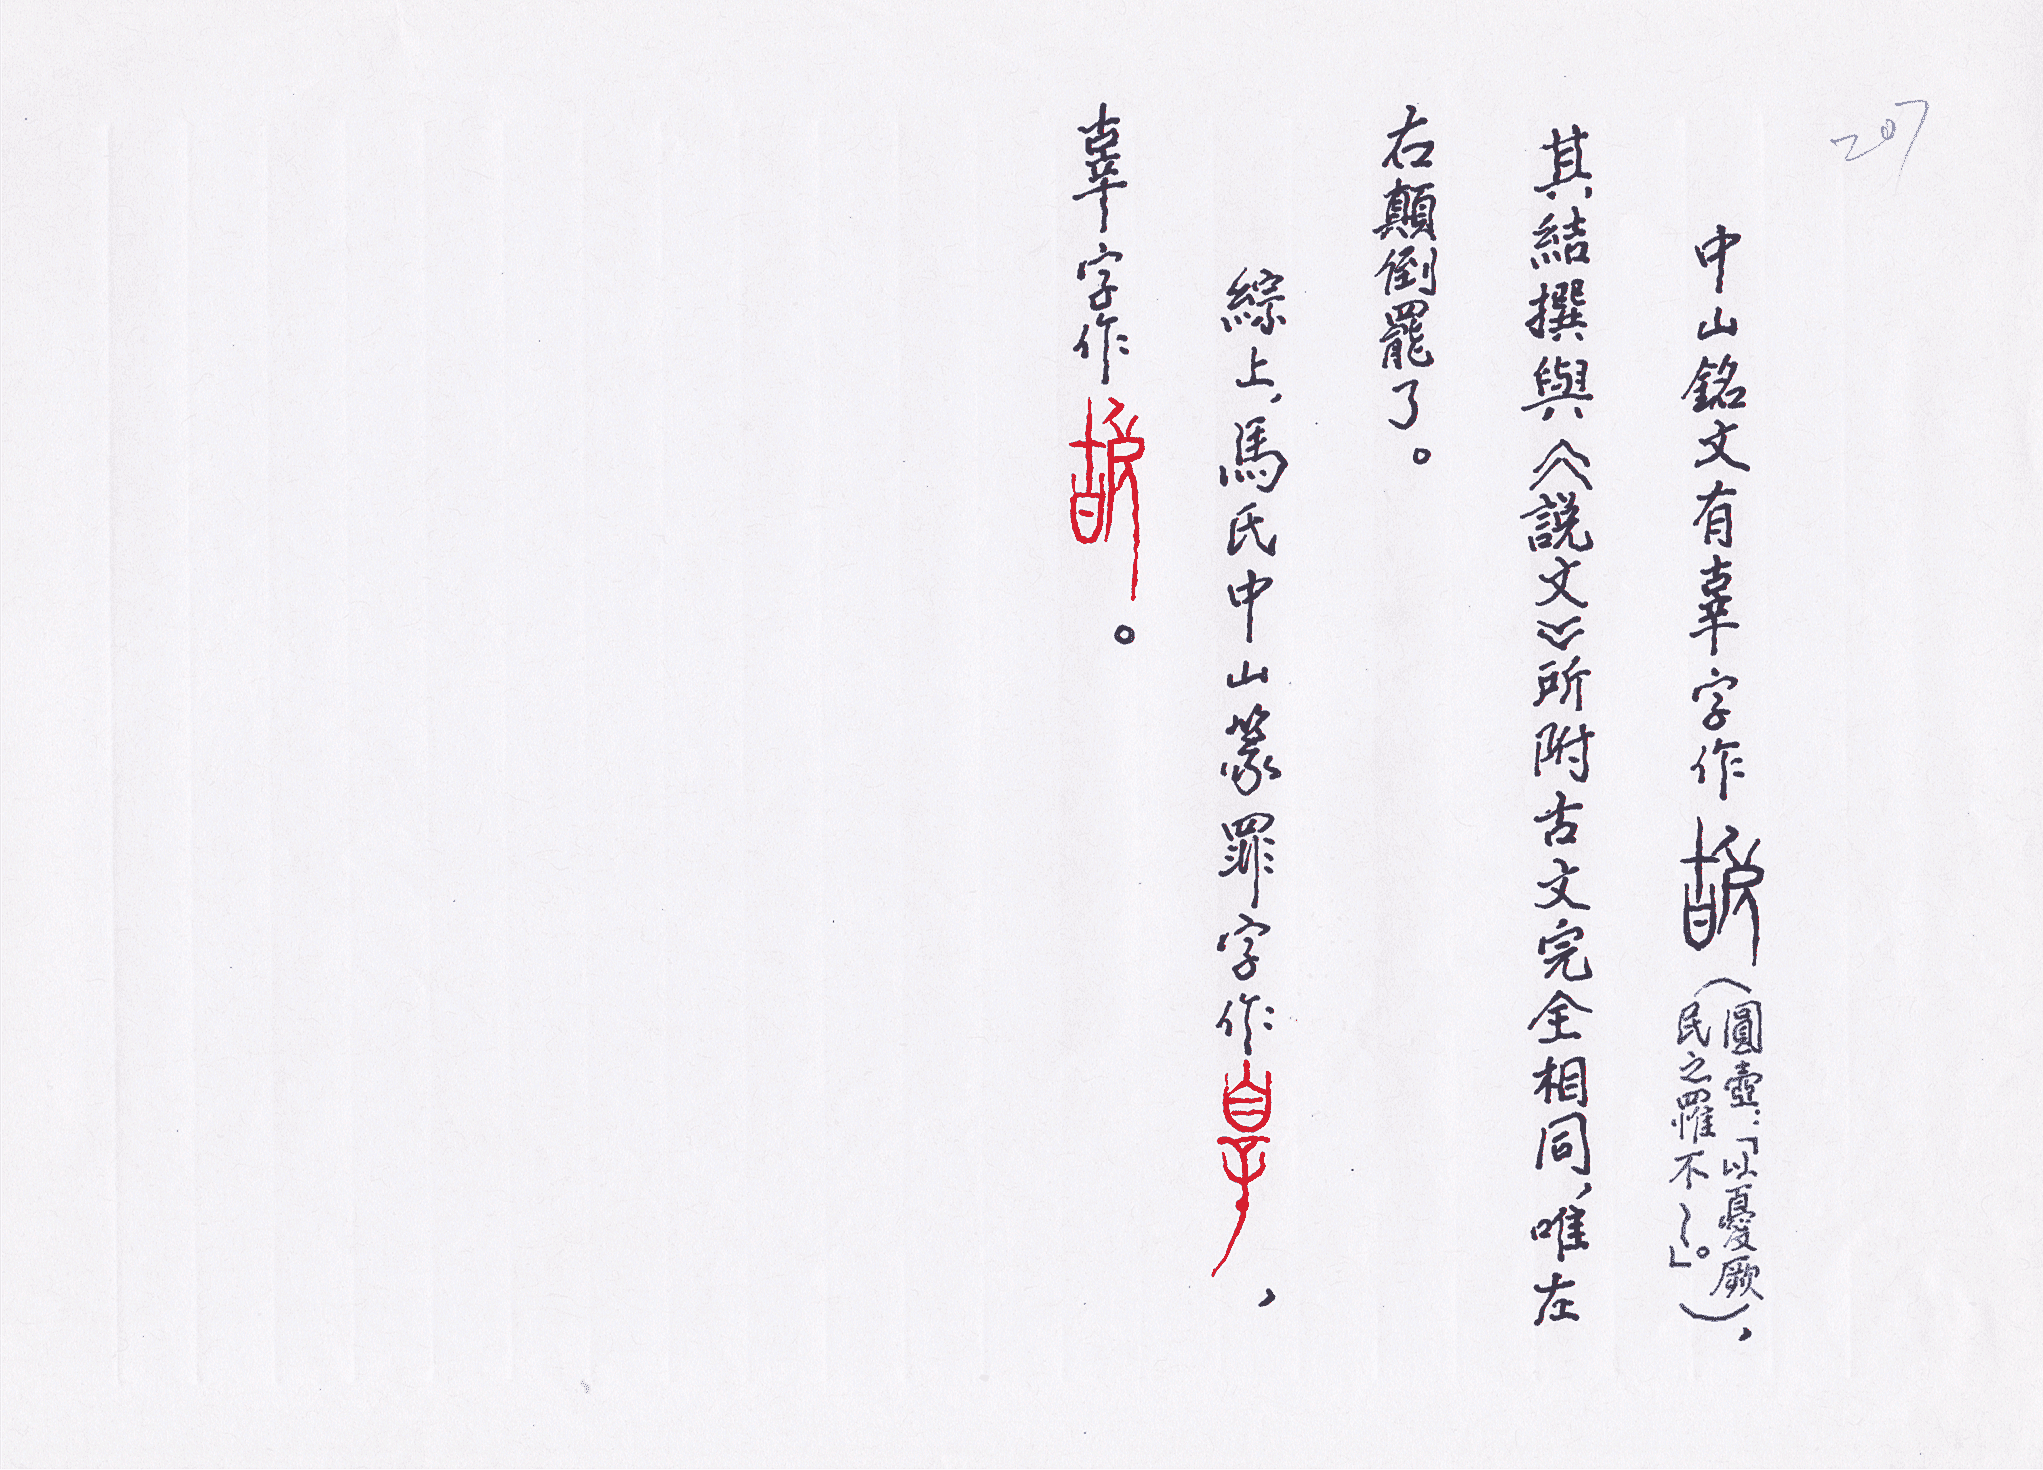 207
中山銘文有辜字作（圓壺：「以憂厥民之罹不～」。），
其結撰與《説文》所附古文完全相同，唯左
右顛倒罷了。
綜上，馬氏中山篆罪字作，
辜字作。